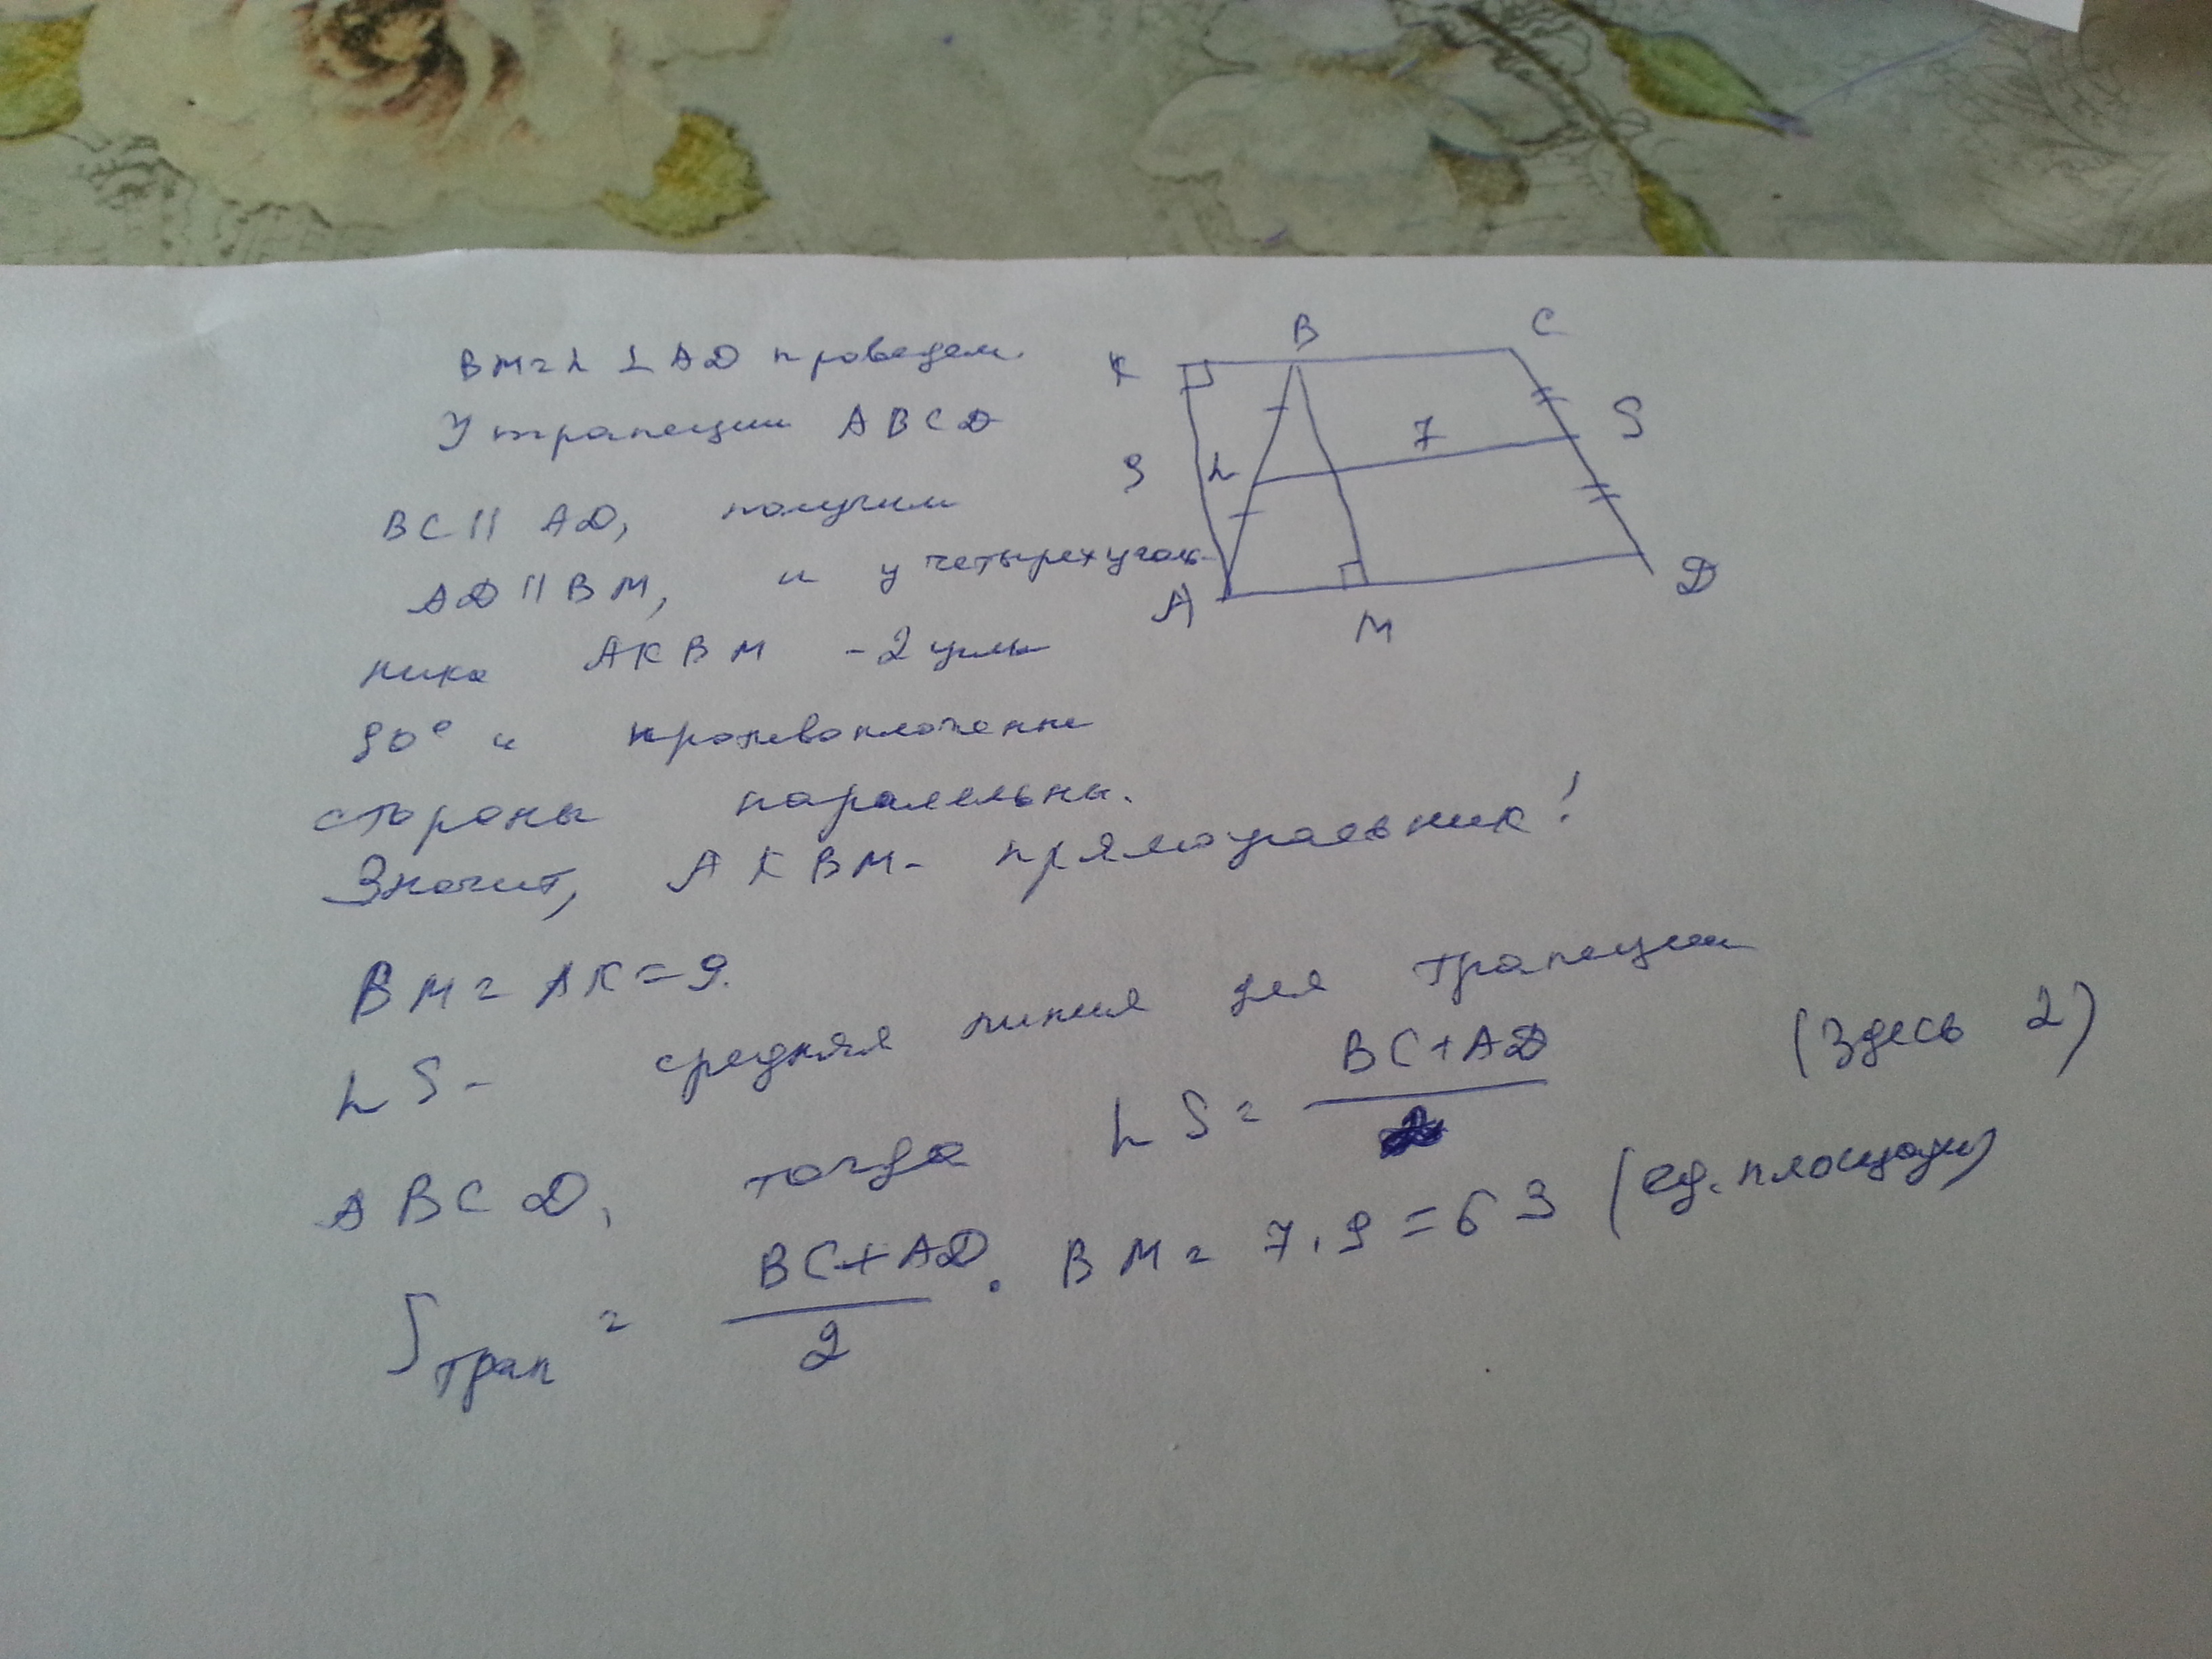 BM=h ⊥ AD проведем.
У трапеции ABCD
BC || AD, получим
AD || BM, и у четырехуголь-
ника AKBM - 2 углы
90° и противоположные
стороны паралельны.
Значит, AKBM - прямоугольник!
BM = AK = 9.
LS - средняя линия для трапеции
ABCD, тогда LS = BC+AD / 2 (Здесь 2)
Sтрап = BC+AD / 2 · BM = 7 · 9 = 63 (ед. площади)
K B C
9 L 7 S
A M D